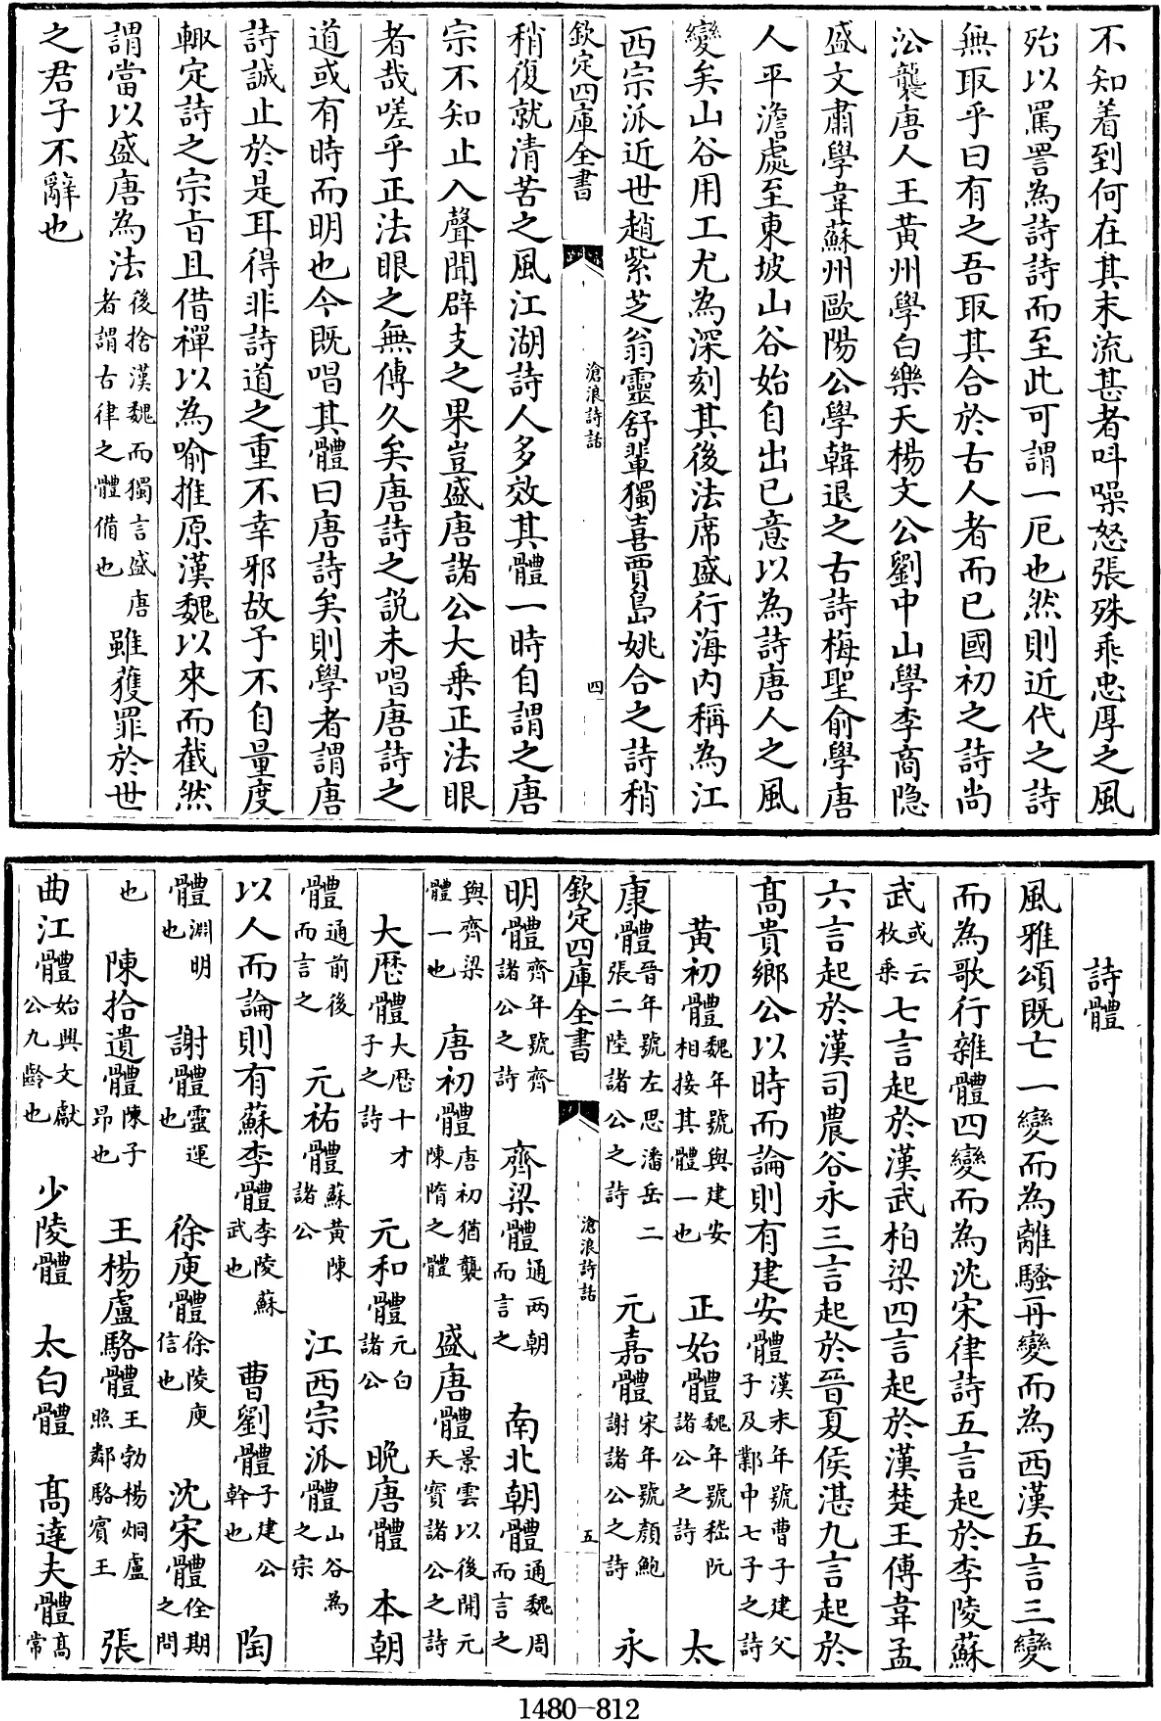 不知着到何在其末流甚者叫噪怒張殊乖忠厚之風
殆以罵詈為詩詩而至此可謂一厄也然則近代之詩
無取乎曰有之吾取其合於古人者而已國初之詩尚
沿襲唐人王黄州學白樂天楊文公劉中山學李商隐
盛文肅學韋蘇州歐陽公學韓退之古詩梅聖俞學唐
人平澹處至東坡山谷始自出已意以為詩唐人之風
變矣山谷用工尤為深刻其後法席盛行海内稱為江
西宗派近世趙紫芝翁靈舒輩獨喜賈島姚合之詩稍
欽定四庫全書 滄浪詩話 四
稍復就清苦之風江湖詩人多效其體一時自謂之唐
宗不知止入聲聞辟支之果豈盛唐諸公大乗正法眼
者哉嗟乎正法眼之無傳久矣唐詩之説未唱唐詩之
道或有時而明也今既唱其體曰唐詩矣則學者謂唐
詩誠止於是耳得非詩道之重不幸邪故予不自量度
輙定詩之宗㫖且借禪以為喻推原漢魏以來而截然
謂當以盛唐為法後捨漢魏而獨言盛唐者謂古律之體備也雖獲罪於世
之君子不辭也
詩體
風雅頌既亡一變而為離騷再變而為西漢五言三變
而為歌行雜體四變而為沈宋律詩五言起於李陵蘇
武或云枚乗七言起於漢武柏梁四言起於漢楚王傅韋孟
六言起於漢司農谷永三言起於晉夏侯湛九言起於
髙貴鄉公以時而論則有建安體漢末年號曹子建父子及鄴中七子之詩
黄初體魏年號與建安相接其體一也 正始體魏年號嵇阮諸公之詩 太
康體晉年號左思潘岳二張二陸諸公之詩 元嘉體宋年號顔鮑謝諸公之詩 永
欽定四庫全書 滄浪詩話 五
明體齊年號齊諸公之詩 齊梁體通兩朝而言之 南北朝體通魏周而言之
與齊梁體一也 唐初體唐初猶襲陳隋之體 盛唐體景雲以後開元天寶諸公之詩
大厯體大厯十才子之詩 元和體元白諸公 晩唐體 本朝
體通前後而言之 元祐體蘇黄陳諸公 江西宗派體山谷為之宗
以人而論則有蘇李體李陵蘇武也 曹劉體子建公幹也 陶
體淵明也 謝體靈運也 徐庾體徐陵庾信也 沈宋體佺期之問
也 陳拾遺體陳子昂也 王楊盧駱體王勃楊炯盧照鄰駱賓王 張
曲江體始興文獻公九齡也 少陵體 太白體 髙達夫體髙常
1480-812